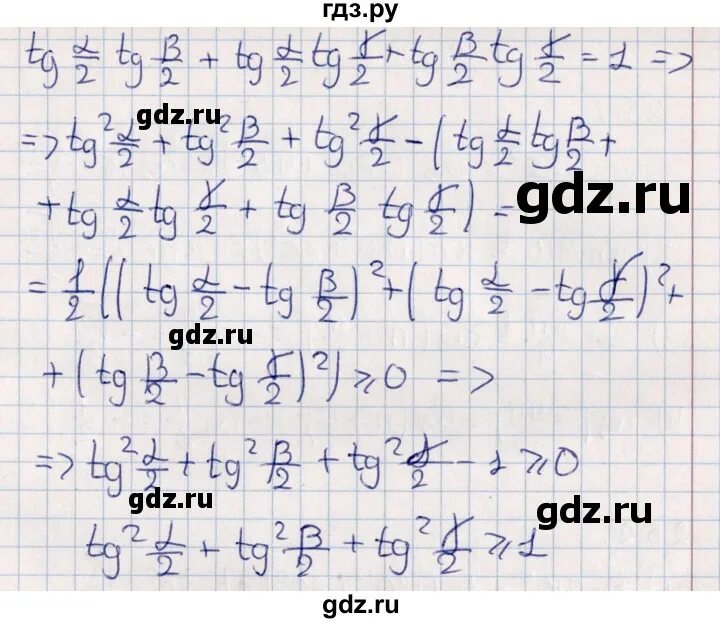 гдз.ру
tg α/2 tg β/2 + tg α/2 tg γ/2 + tg β/2 tg γ/2 = 1 =>
gdz.ru
=> tg² α/2 + tg² β/2 + tg² γ/2 - ( tg α/2 tg β/2 +
+ tg α/2 tg γ/2 + tg β/2 tg γ/2 ) =
gdz.ru
= 1/2 (( tg α/2 - tg β/2 )² + ( tg α/2 - tg γ/2 )² +
gdz.ru
+ ( tg β/2 - tg γ/2 )² ) ⩾ 0 =>
=> tg² α/2 + tg² β/2 + tg² γ/2 - 1 ⩾ 0
gdz.ru
gdz.ru
tg² α/2 + tg² β/2 + tg² γ/2 ⩾ 1
gdz.ru